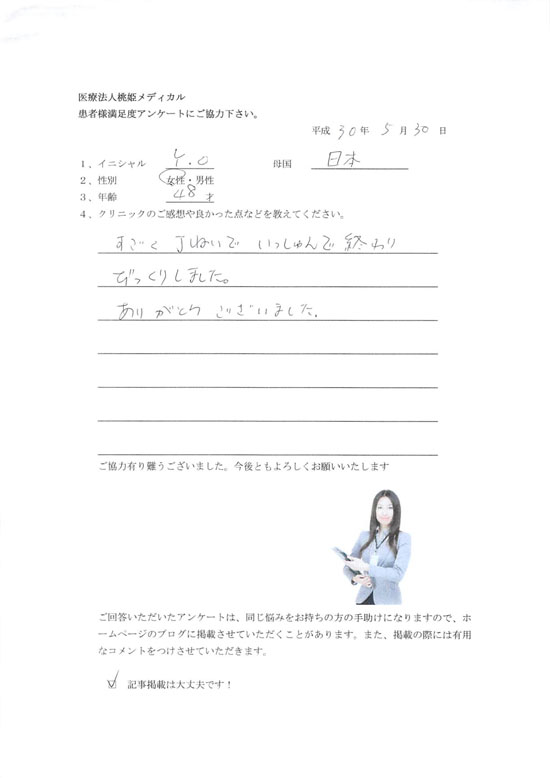 医療法人桃姫メディカル
患者様満足度アンケートにご協力下さい。
平成 30 年 5 月 30 日
1、イニシャル Y.O 母国 日本
2、性別 女性・男性
3、年齢 48 才
4、クリニックのご感想や良かった点などを教えてください。
すごく 丁ねいで いっしゅんで 終わり
びっくりしました。
ありがとう ございました。
ご協力有り難うございました。今後ともよろしくお願いいたします
ご回答いただいたアンケートは、同じ悩みをお持ちの方の手助けになりますので、ホ
ームページのブログに掲載させていただくことがあります。また、掲載の際には有用
なコメントをつけさせていただきます。
☑ 記事掲載は大丈夫です！